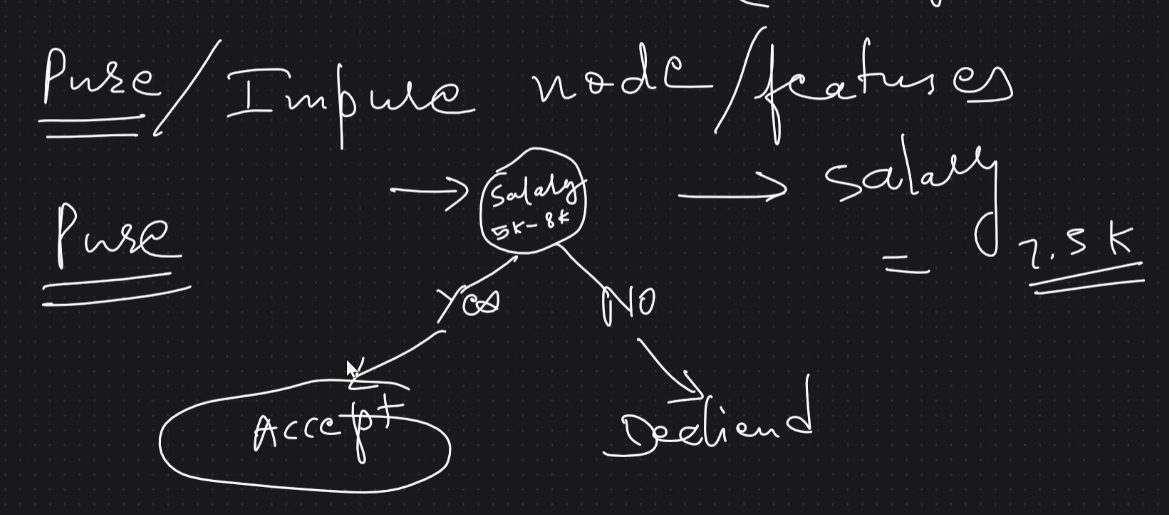 Pure / Impure node / features
Salary
5K-8K
→ salary
= 7.5 K
Pure
Yes
NO
Accept
Decliend